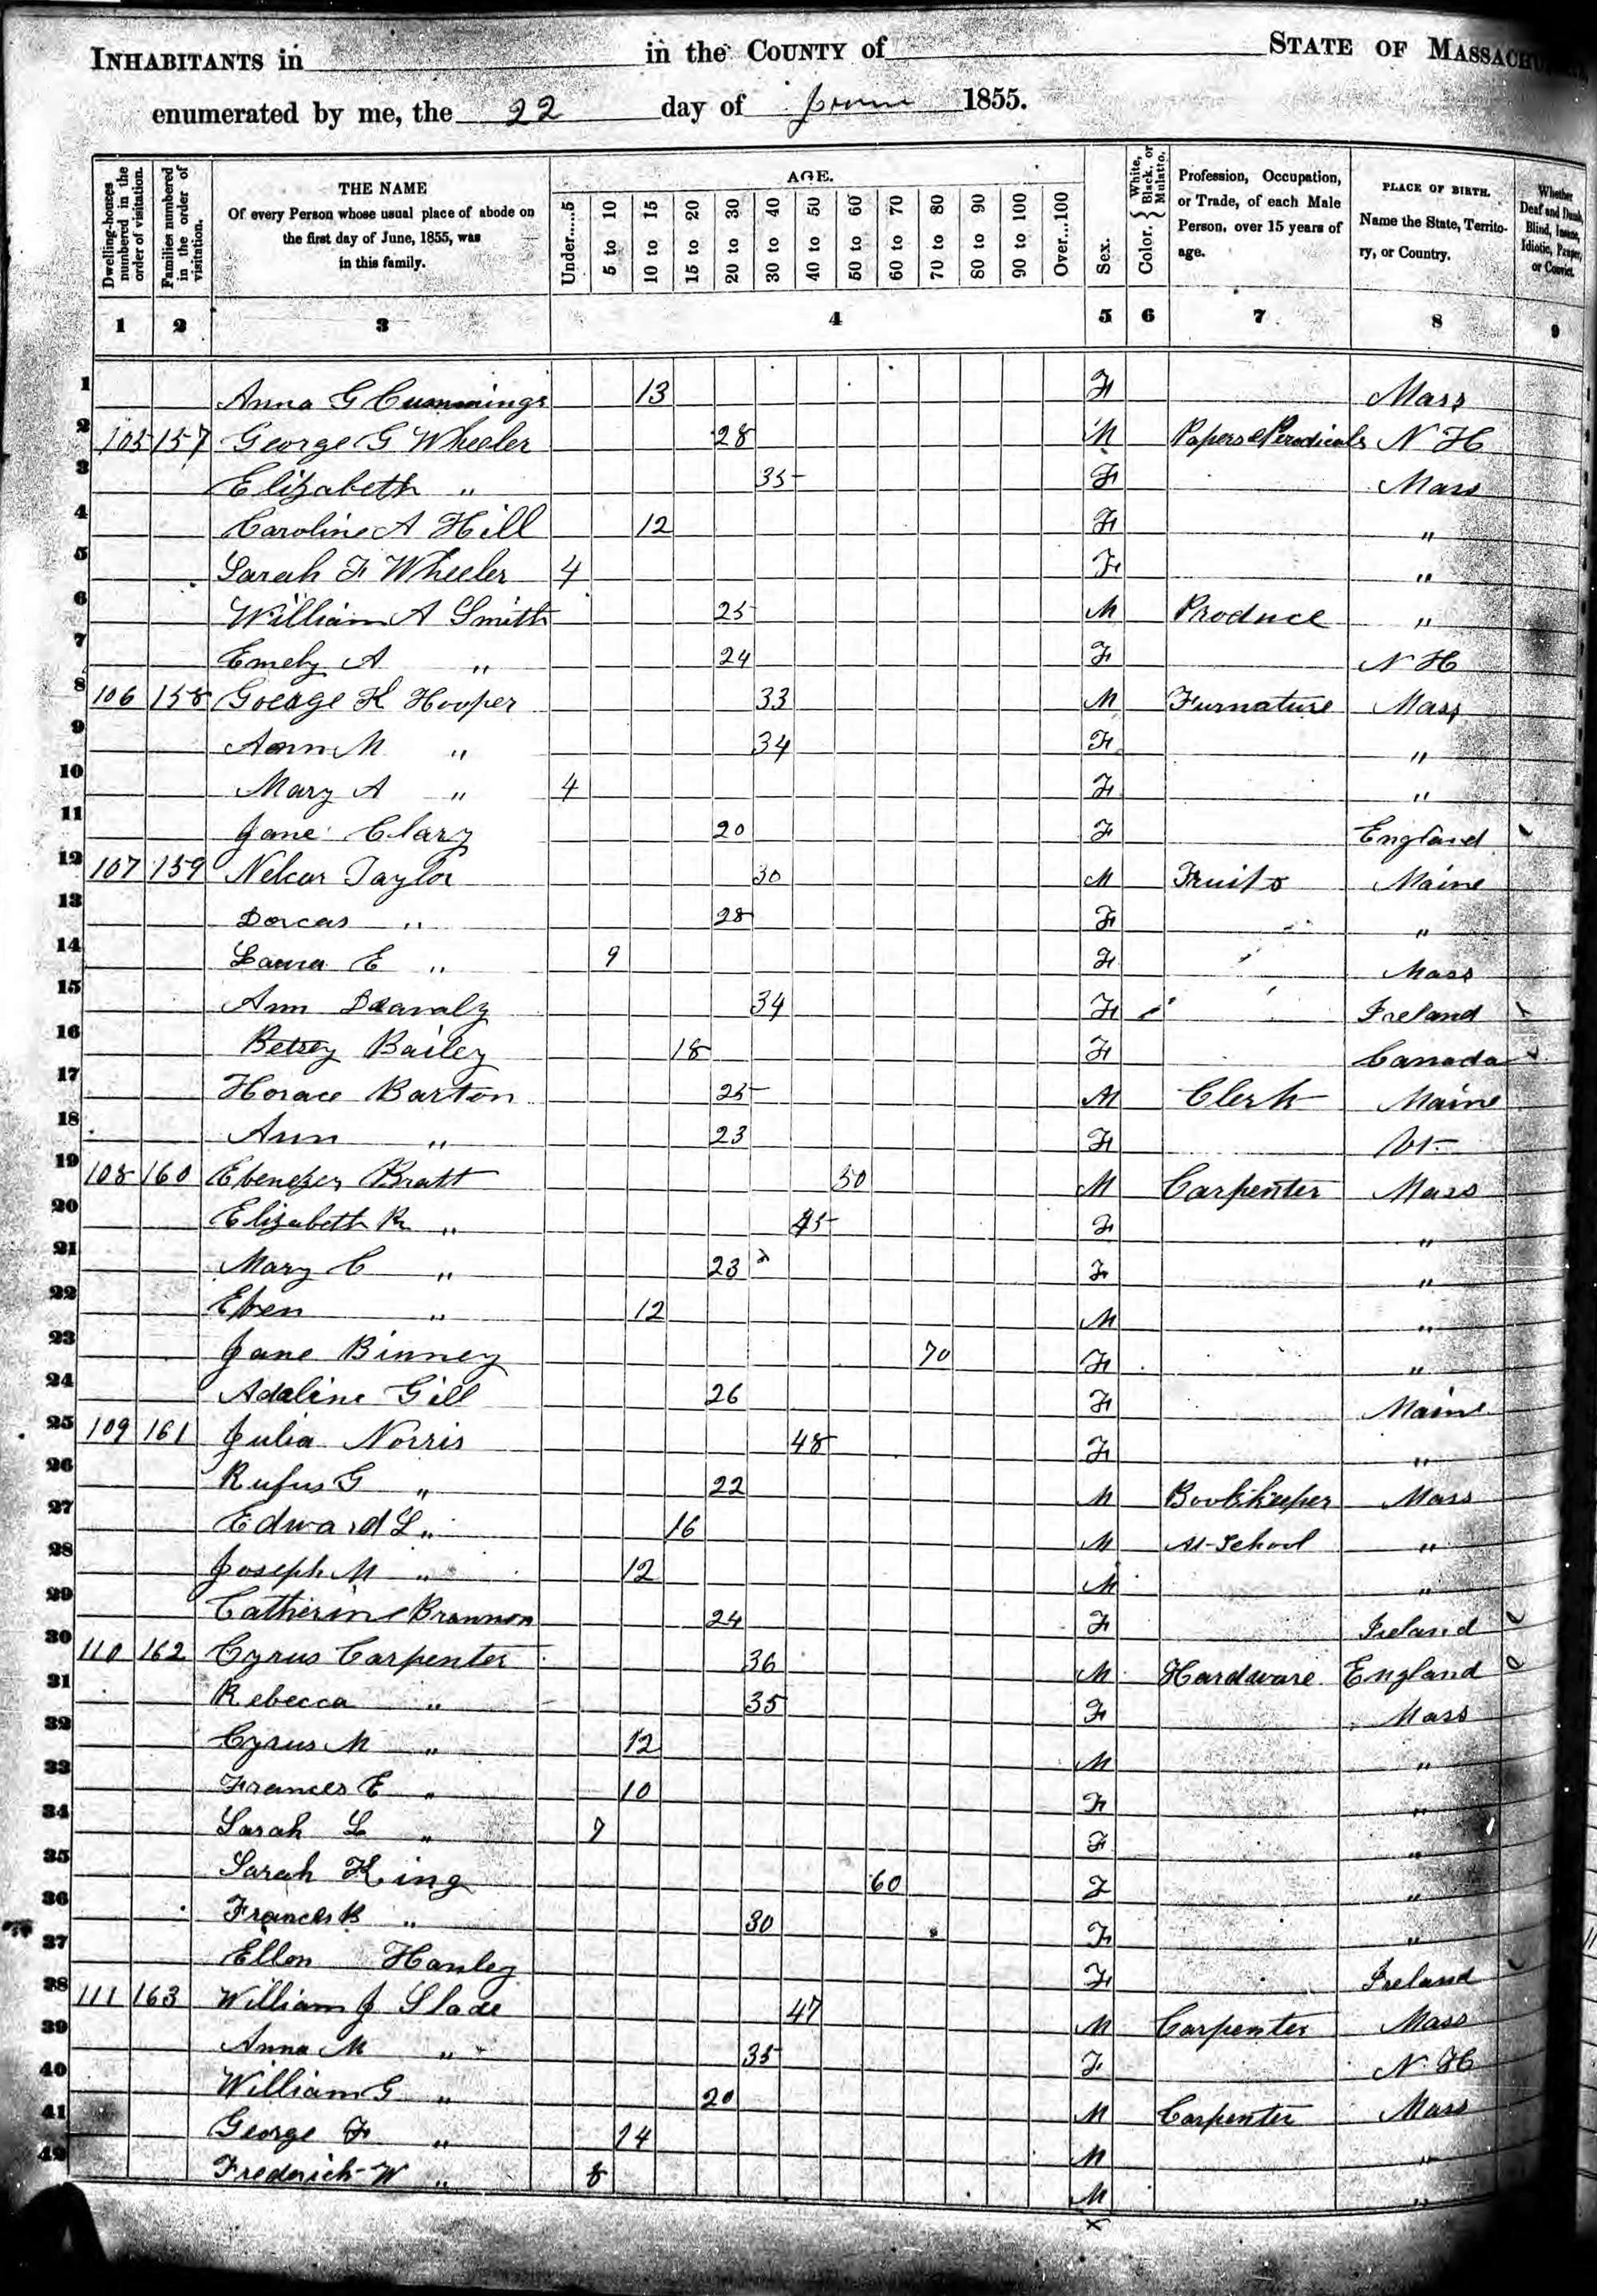 INHABITANTS in in the COUNTY of STATE OF
enumerated by me, the 22 day of June 1855.
Dwelling-houses numbered in the order of visitation.
Families numbered in the order of visitation.
THE NAME
Of every Person whose usual place of abode on
the first day of June, 1855, was
in this family.
AGE.
Under....5 5 to 10 10 to 15 15 to 20 20 to 30 30 to 40 40 to 50 50 to 60 60 to 70 70 to 80 80 to 90 90 to 100 Over...100
Sex.
Color. { White, Black, or Mulatto. }
Profession, Occupation,
or Trade, of each Male
Person, over 15 years of
age.
PLACE OF BIRTH.
Name the State, Territo-
ry, or Country.
Whether
Deaf and Dumb,
Blind, Insane,
Idiotic, Pauper,
or Convict.
1 2 3 4 5 6 7 8 9
1 Anna G Cummings 13 F Mass
2 105 157 George G Wheeler 28 M Papers & Perodicals N H
3 Elizabeth " 35 F Mass
4 Caroline A Hill 12 F "
5 Sarah F Wheeler 4 F "
6 William A Smith 25 M Produce "
7 Emely A " 24 F N H
8 106 158 Goeage K Hooper 33 M Furnature Mass
9 Ann M " 34 F "
10 Mary A " 4 F "
11 Jane Clary 20 F England
12 107 159 Taylor 30 M Fruits Maine
13 Dorcas " 28 F "
14 Laura E " 9 F Mass
15 Ann 34 F Ireland
16 Betsey Bailey 18 F Canada
17 Horace Barton 25 M Clerk Maine
18 Ann " 23 F Vt
19 108 160 Ebenezer Bratt 50 M Carpenter Mass
20 Elizabeth R " 45 F "
21 Mary C " 23 F "
22 Eben " 12 M "
23 Jane Binney 70 F "
24 Adaline Gill 26 F Maine
25 109 161 Julia Norris 48 F "
26 Rufus G " 22 M Bookkeeper Mass
27 Edward L " 16 M At School "
28 Joseph M " 12 M "
29 Catherine Brannon 24 F Ireland
30 110 162 Cyrus Carpenter 36 M Hardware England
31 Rebecca " 35 F Mass
32 Cyrus M " 12 M "
33 Frances E " 10 F "
34 Sarah L " 7 F "
35 Sarah King 60 F "
36 Frances B " 30 F "
37 Ellon Hanley F Ireland
38 111 163 William J Slade 47 M Carpenter Mass
39 Anna M " 35 F N H
40 William G " 20 M Carpenter Mass
41 George F " 14 M "
42 Frederich W " 8 M "
x